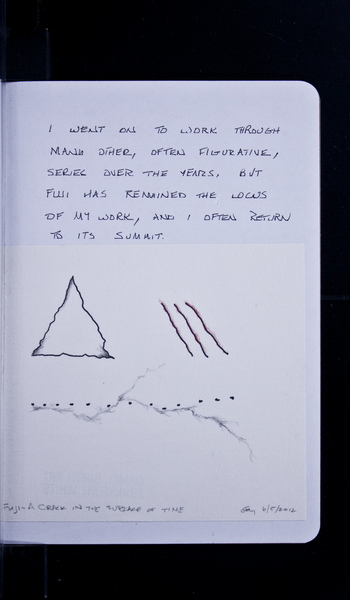 I WENT ON TO WORK THROUGH
MANY OTHER, OFTEN FIGURATIVE,
SERIES OVER THE YEARS. BUT
FUJI HAS REMAINED THE LOCUS
OF MY WORK, AND I OFTEN RETURN
TO ITS SUMMIT.
FUJI: A CRACK IN THE SURFACE OF TIME
6/5/2012